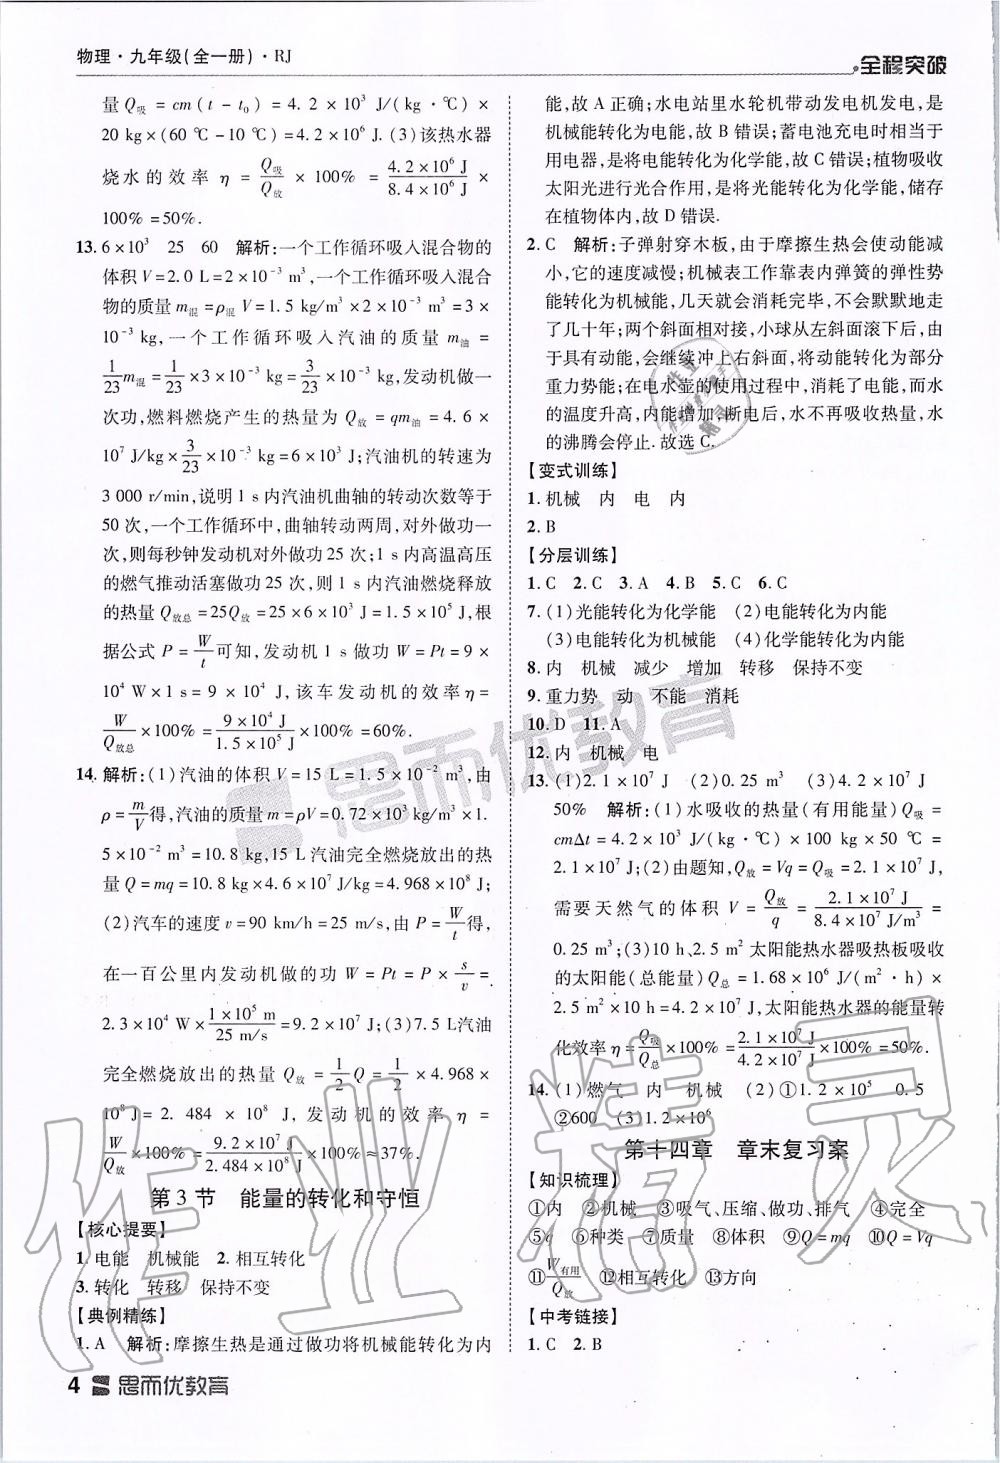 物理·九年级(全一册)·RJ
全程突破
量Q吸=cm(t-t₀)=4.2×10³ J/(kg·℃)×
20 kg×(60 ℃-10 ℃)=4.2×10⁶ J.(3)该热水器
烧水的效率η=Q吸/Q放×100%=4.2×10⁶ J/8.4×10⁶ J×
100%=50%.
13.6×10³ 25 60 解析:一个工作循环吸入混合物的
体积V=2.0 L=2×10⁻³ m³,一个工作循环吸入混合
物的质量m混=ρ混V=1.5 kg/m³×2×10⁻³ m³=3×
10⁻³ kg,一个工作循环吸入汽油的质量m油=
1/23m混=1/23×3×10⁻³ kg=3/23×10⁻³ kg,发动机做一
次功,燃料燃烧产生的热量为Q放=qm油=4.6×
10⁷ J/kg×3/23×10⁻³ kg=6×10³ J;汽油机的转速为
3 000 r/min,说明1 s内汽油机曲轴的转动次数等于
50次,一个工作循环中,曲轴转动两周,对外做功一
次,则每秒钟发动机对外做功25次;1 s内高温高压
的燃气推动活塞做功25次,则1 s内汽油燃烧释放
的热量Q放总=25Q放=25×6×10³ J=1.5×10⁵ J,根
据公式P=W/t可知,发动机1 s做功W=Pt=9×
10⁴ W×1 s=9×10⁴ J,该车发动机的效率η=
W/Q放总×100%=9×10⁴ J/1.5×10⁵ J×100%=60%.
14.解析:(1)汽油的体积V=15 L=1.5×10⁻² m³,由
ρ=m/V得,汽油的质量m=ρV=0.72×10³ kg/m³×1.
5×10⁻² m³=10.8 kg,15 L汽油完全燃烧放出的热
量Q=mq=10.8 kg×4.6×10⁷ J/kg=4.968×10⁸ J;
(2)汽车的速度v=90 km/h=25 m/s,由P=W/t得,
在一百公里内发动机做的功W=Pt=P×s/v=
2.3×10⁴ W×1×10⁵ m/25 m/s=9.2×10⁷ J;(3)7.5 L汽油
完全燃烧放出的热量Q放=1/2Q=1/2×4.968×
10⁸ J=2.484×10⁸ J,发动机的效率η=
W/Q放×100%=9.2×10⁷ J/2.484×10⁸ J×100%≈37%.
第3节 能量的转化和守恒
【核心提要】
1.电能 机械能 2.相互转化
3.转化 转移 保持不变
【典例精练】
1.A 解析:摩擦生热是通过做功将机械能转化为内
4 思而优教育
能,故A正确;水电站里水轮机带动发电机发电,是
机械能转化为电能,故B错误;蓄电池充电时相当于
用电器,是将电能转化为化学能,故C错误;植物吸收
太阳光进行光合作用,是将光能转化为化学能,储存
在植物体内,故D错误.
2.C 解析:子弹射穿木板,由于摩擦生热会使动能减
小,它的速度减慢;机械表工作靠表内弹簧的弹性势
能转化为机械能,几天就会消耗完毕,不会默默地走
了几十年;两个斜面相对接,小球从左斜面滚下后,由
于具有动能,会继续冲上右斜面,将动能转化为部分
重力势能;在电水壶的使用过程中,消耗了电能,而水
的温度升高,内能增加;断电后,水不再吸收热量,水
的沸腾会停止.故选C.
【变式训练】
1.机械 内 电 内
2.B
【分层训练】
1.C 2.C 3.A 4.B 5.C 6.C
7.(1)光能转化为化学能 (2)电能转化为内能
(3)电能转化为机械能 (4)化学能转化为内能
8.内 机械 减少 增加 转移 保持不变
9.重力势 动 不能 消耗
10.D 11.A
12.内 机械 电
13.(1)2.1×10⁷ J (2)0.25 m³ (3)4.2×10⁷ J
50% 解析:(1)水吸收的热量(有用能量)Q吸=
cmΔt=4.2×10³ J/(kg·℃)×100 kg×50 ℃=
2.1×10⁷ J;(2)由题知,Q放=Vq=Q吸=2.1×10⁷ J,
需要天然气的体积V=Q放/q=2.1×10⁷ J/8.4×10⁷ J/m³=
0.25 m³;(3)10 h、2.5 m²太阳能热水器吸热板吸收
的太阳能(总能量)Q总=1.68×10⁶ J/(m²·h)×
2.5 m²×10 h=4.2×10⁷ J,太阳能热水器的能量转
化效率η=Q吸/Q总×100%=2.1×10⁷ J/4.2×10⁷ J×100%=50%.
14.(1)燃气 内 机械 (2)①1.2×10⁵ 0.5
②600 (3)1.2×10⁶
第十四章 章末复习案
【知识梳理】
①内 ②机械 ③吸气、压缩、做功、排气 ④完全
⑤q ⑥种类 ⑦质量 ⑧体积 ⑨Q=mq ⑩Q=Vq
⑪W有用/Q放 ⑫相互转化 ⑬方向
【中考链接】
1.C 2.B
思而优教育
作业精灵